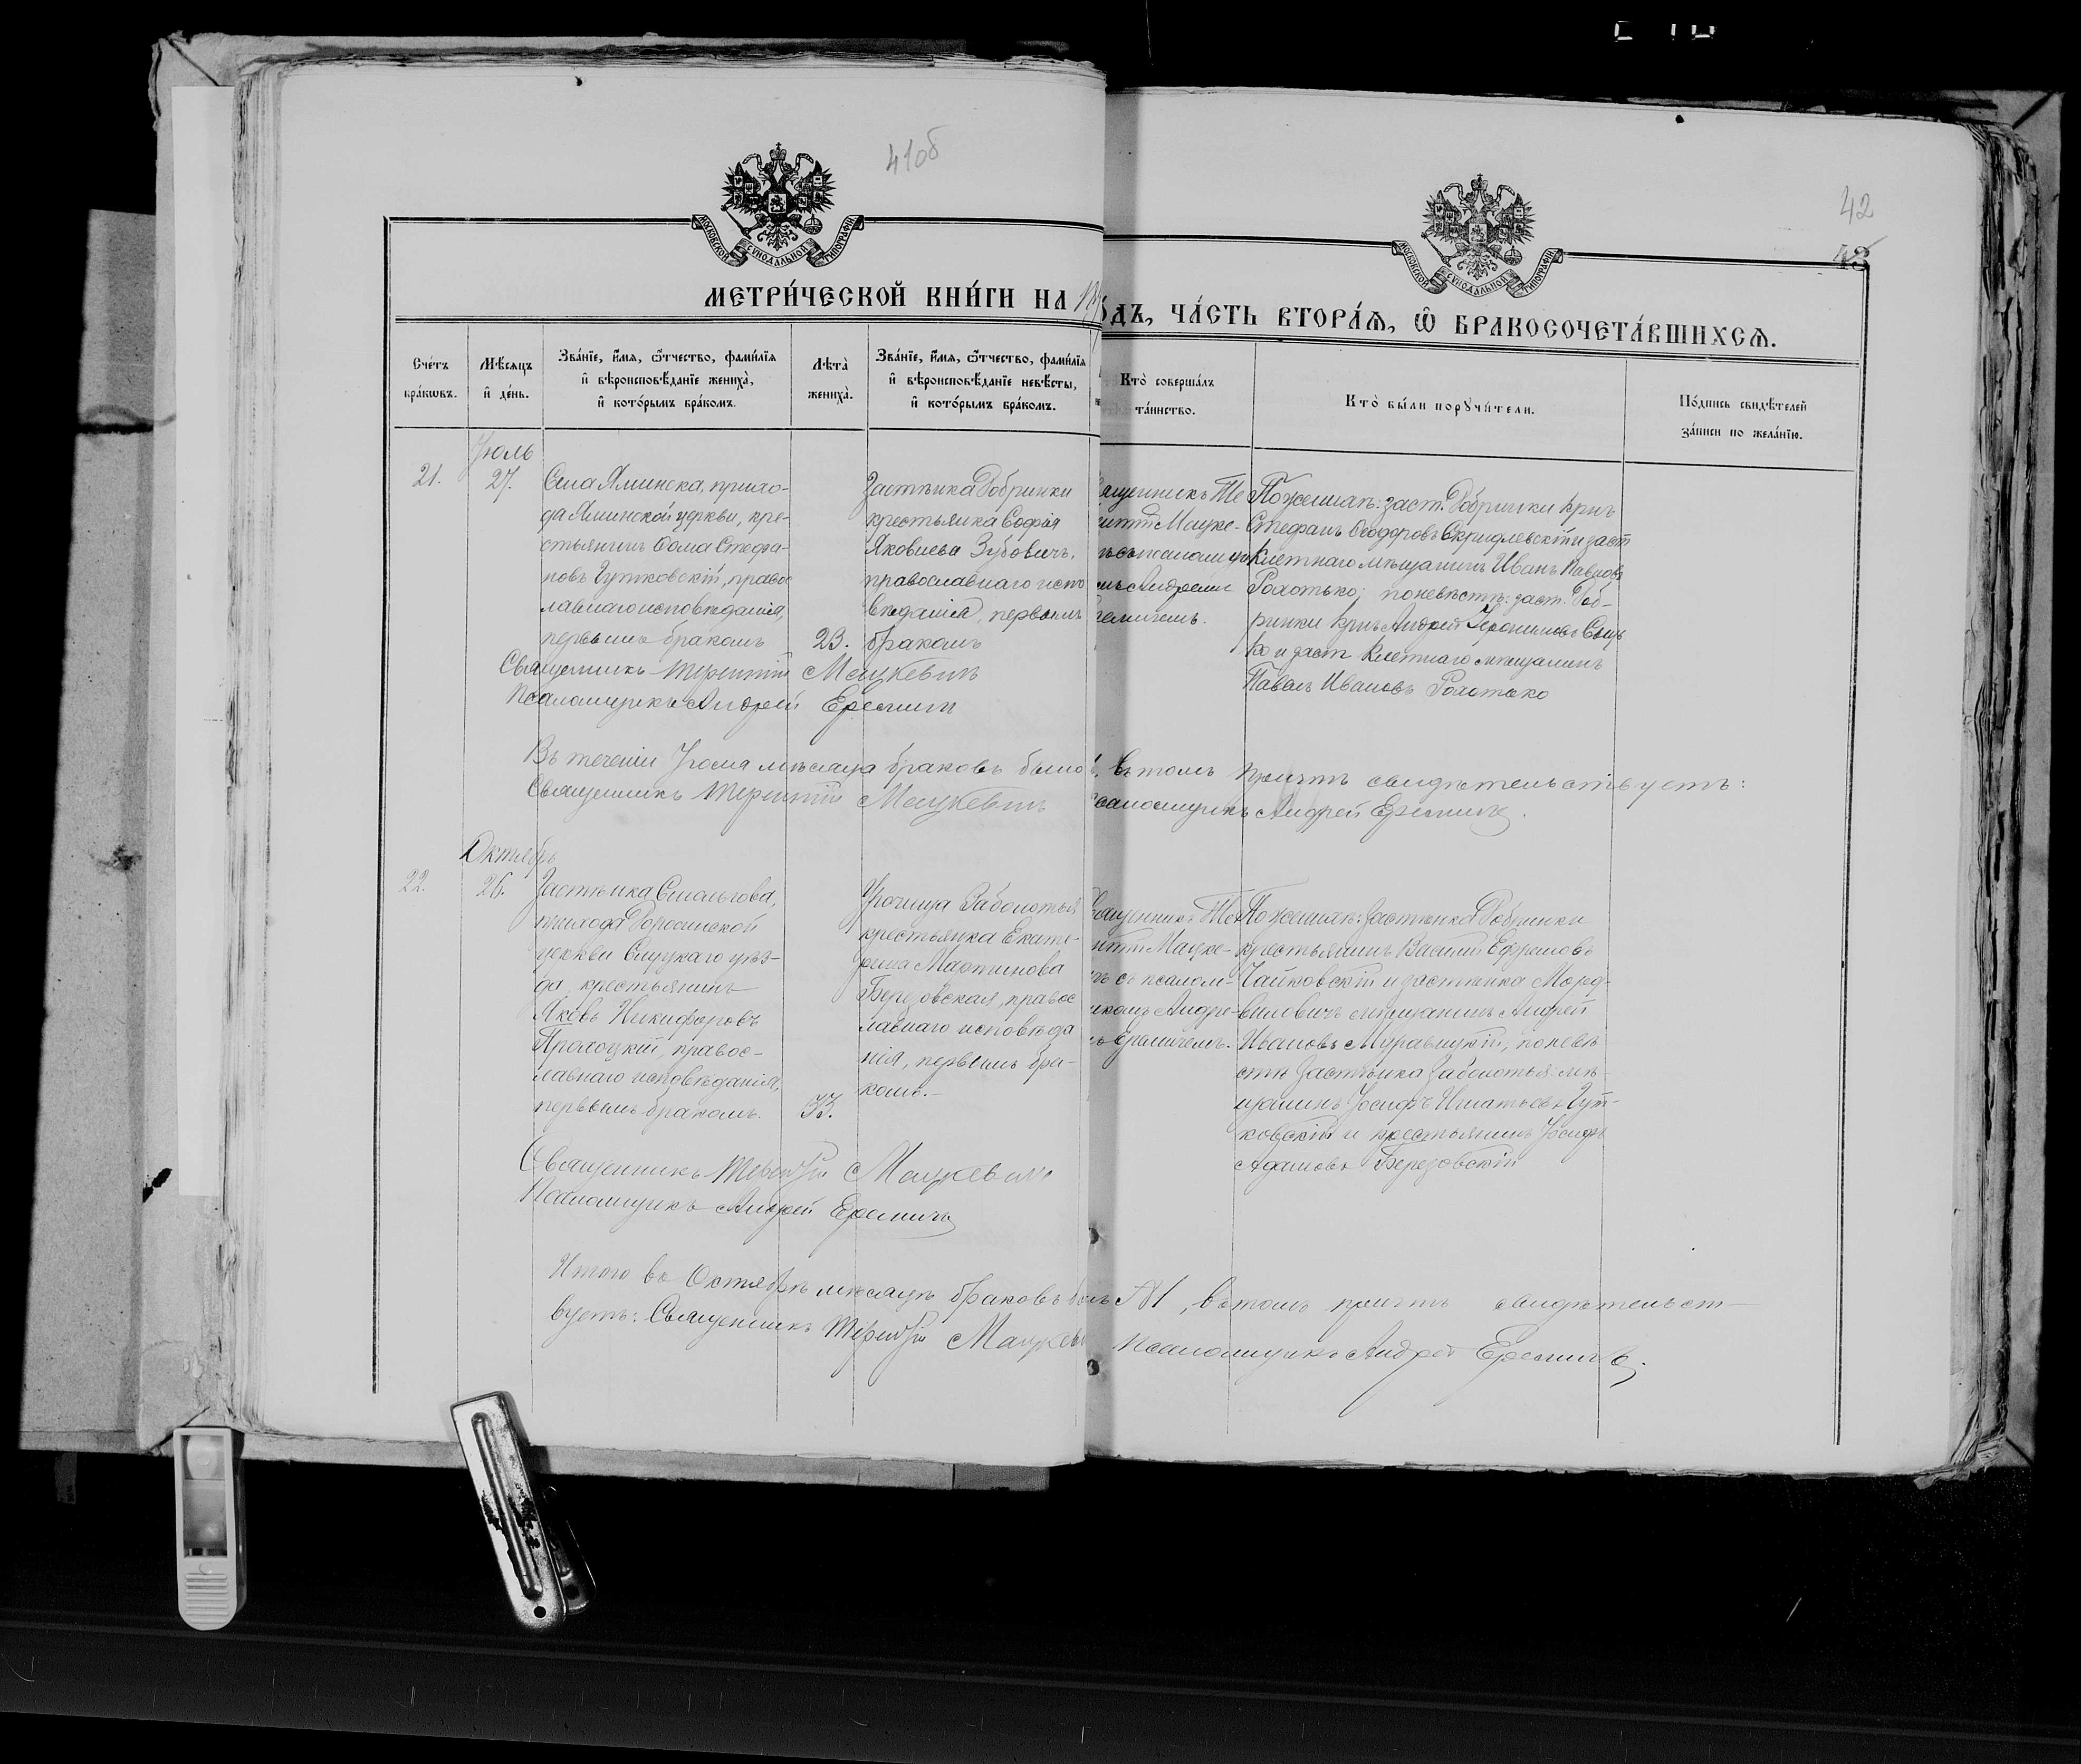 41об
42
МОСКОВСКОЙ СѴНОДАЛЬНОЙ ТИПОГРАФІИ
МОСКОВСКОЙ СѴНОДАЛЬНОЙ ТИПОГРАФІИ
МЕТРИ́ЧЕСКОЙ КНИ́ГИ НА
ОДЪ, ЧА́СТЬ ВТОРА́Ѧ, Ѽ БРАКОСОЧЕТА́ВШИХСѦ.
Сче́тъ бра́кѡвъ.
Мѣ́сѧцъ и҆ де́нь.
Зва́нїе, и҆́мѧ, ѻ҆́тчество, фами́лїѧ
и҆ вѣроисповѣ́данїе жениха̀,
и҆ кото́рымъ бра́комъ.
Лѣта̀ жениха̀.
Зва́нїе, и҆́мѧ, ѻ҆́тчество, фами́лїѧ
и҆ вѣроисповѣ́данїе невѣ́сты,
и҆ кото́рымъ бра́комъ.
Кто̀ соверша́лъ
та́инство.
Кто̀ бы́ли порꙋчи́тели.
По́дпись свидѣ́телей
за́писи по жела́нїю.
Іюль
21.
27.
Села Яминска, прихо-
да Яминской церкви, кре-
стьянинъ Ѳома Стефа-
новъ Гутковскій, правос
лавнаго исповѣданія,
первымъ бракомъ
23.
Застѣнка Добринки
крестьянка Софія
Яковлева Зубовичъ,
православнаго испо
вѣданія, первымъ
бракомъ
ященникъ Те
ентій Мацке-
ъ съ псаломщи
мъ Андреемъ
ремичемъ.
По женихѣ: заст. Добринки крнъ
Стефанъ Ѳеодоровъ и заст
Клетнаго мѣщанинъ Иванъ Павловъ
Рахотько; по невѣстѣ: заст. Доб-
ринки крнъ Андрей Іеронимовъ
и заст Клетнаго мѣщанинъ
Павелъ Ивановъ Рахотько
Священникъ Терентій Мацкевичъ
Псаломщикъ Андрей Еремичъ
Въ теченіи Іюля мѣсяца браковъ было въ томъ причтъ свидѣтельствуетъ:
Священникъ Терентій Мацкевичъ
саломщикъ Андрей Еремичъ.
Октябрь
22.
26.
Застѣнка
прихода
церкви Слуцкаго уѣз-
да, крестьянинъ
Яковъ Никифоровъ
правос-
лавнаго исповѣданія,
первымъ бракомъ.
33.
Урочища Заболотья
крестьянка Екате-
рина Мартинова
Березовская, правос
лавнаго исповѣда
нія, первымъ бра-
комъ.
вященникъ Те
нтій Мацке-
чъ съ псалом-
икомъ Андре-
ъ Еремичемъ.
По женихѣ: Застѣнка Добринки
крестьянинъ Василій Ефремовъ
Чайковскій и застѣнка Морд-
виловичъ мѣщанинъ Андрей
Ивановъ Муравицкій, по невѣ
стѣ Застѣнка Заболотья мѣ-
щанинъ Іосифъ Игнатьевъ Гут-
ковскій и крестьянинъ Іосифъ
Адамовъ Березовскій
Священникъ Терентій Мацкевичъ
Псаломщикъ Андрей Еремичъ
Итого въ Октябрѣ мѣсяцѣ браковъ былъ №1, въ томъ причтъ свидѣтельст-
вуетъ: Священникъ Терентій Мацкеви Псаломщикъ Андрей Еремичъ.